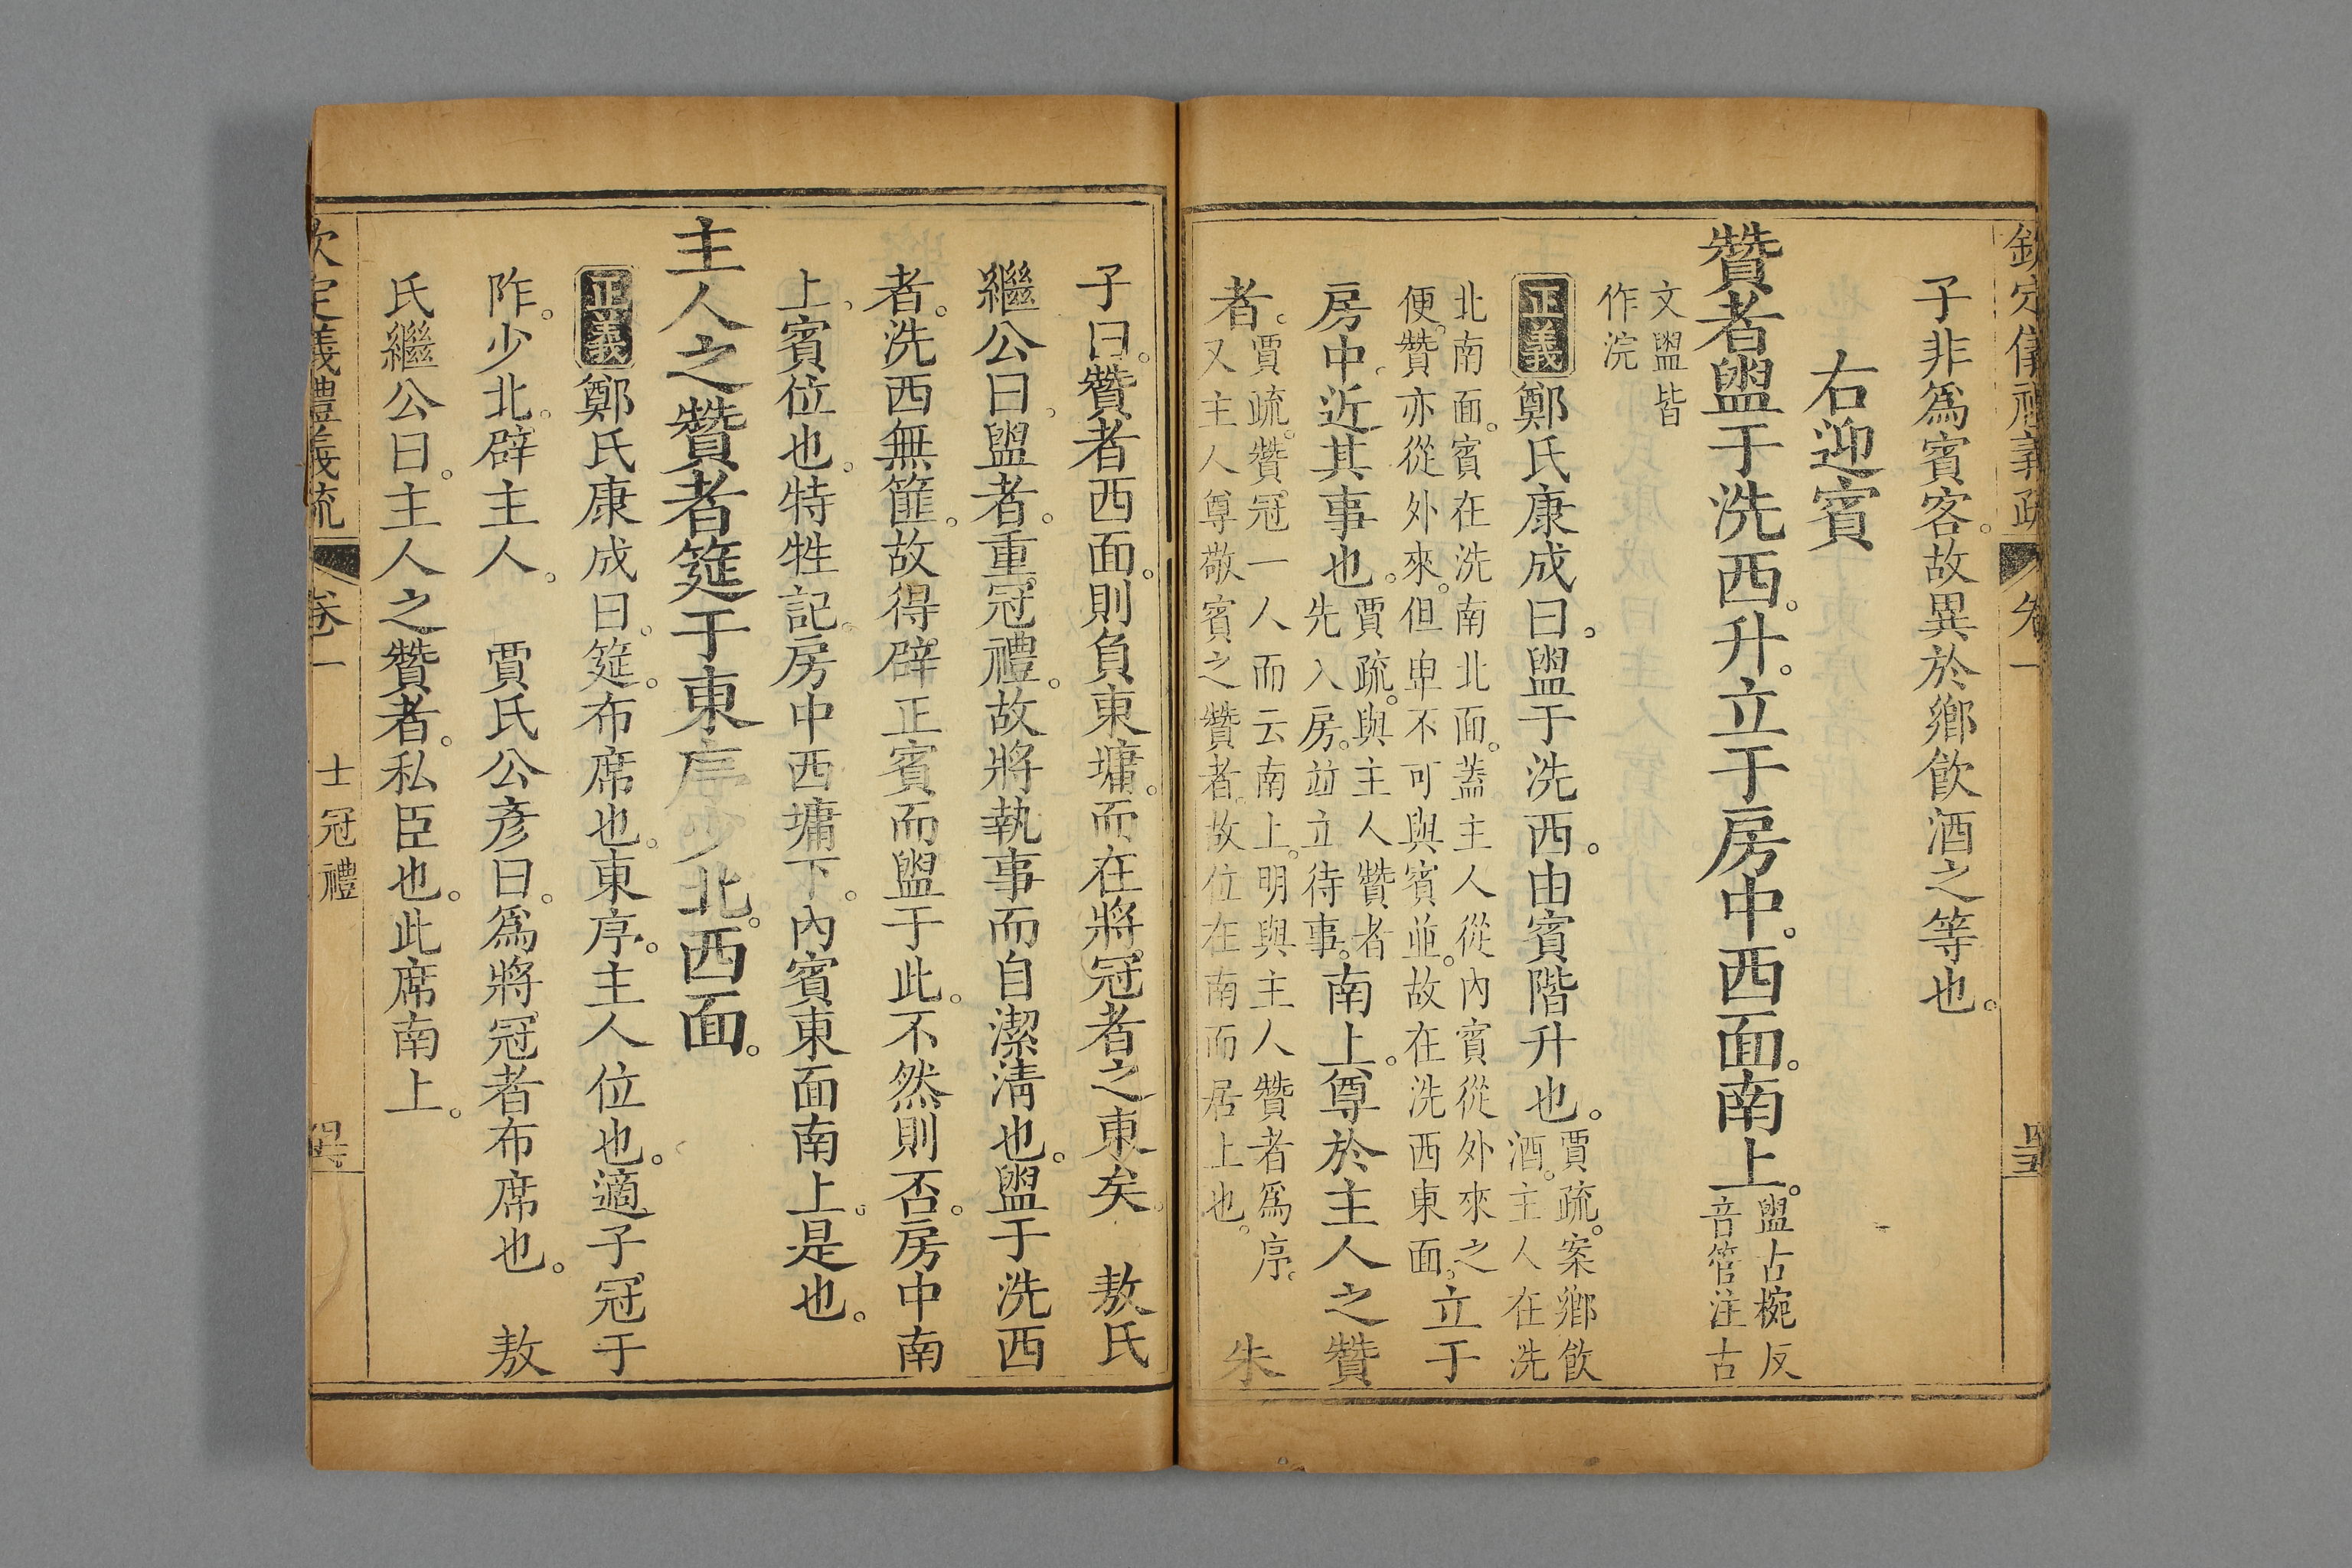 欽定儀禮義疏 卷一
子非爲賓客。故異於鄉飲酒之等也。
右迎賓
贊者盥于洗西。升。立于房中。西面。南上。
盥古椀反
音管注古
文盥皆
作浣
正義 鄭氏康成曰。盥于洗西。由賓階升也。
賈疏。案鄉飲
酒。主人在洗
北南面。賓在洗南北面。蓋主人從內賓從外來之
便。贊亦從外來。但卑不可與賓並。故在洗西東面。
立于
房中。近其事也。
賈疏。與主人贊者
先入房。並立待事。
南上。尊於主人之贊
者。
賈疏。贊冠一人而云南上。明與主人贊者爲序。
又主人尊敬賓之贊者。故位在南而居上也。
朱
子曰。贊者西面。則負東墉。而在將冠者之東矣。 敖氏
繼公曰。盥者。重冠禮。故將執事而自潔淸也。盥于洗西
者。洗西無篚。故得辟正賓而盥于此。不然則否。房中南
上、賓位也。特牲記。房中西墉下。內賓東面南上。是也。
主人之贊者筵于東序少北。西面。
正義 鄭氏康成曰。筵。布席也。東序。主人位也。適子冠于
阼。少北。辟主人。 賈氏公彥曰。爲將冠者布席也。 敖
氏繼公曰。主人之贊者。私臣也。此席南上。
定義禮義疏 卷一 士冠禮